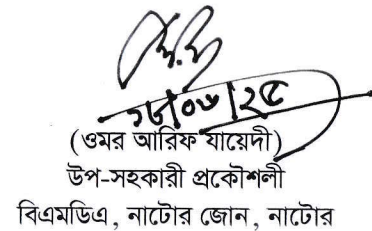 (ওমর আরিফ যায়েদী)
উপ-সহকারী প্রকৌশলী
বিএমডিএ, নাটোর জোন, নাটোর